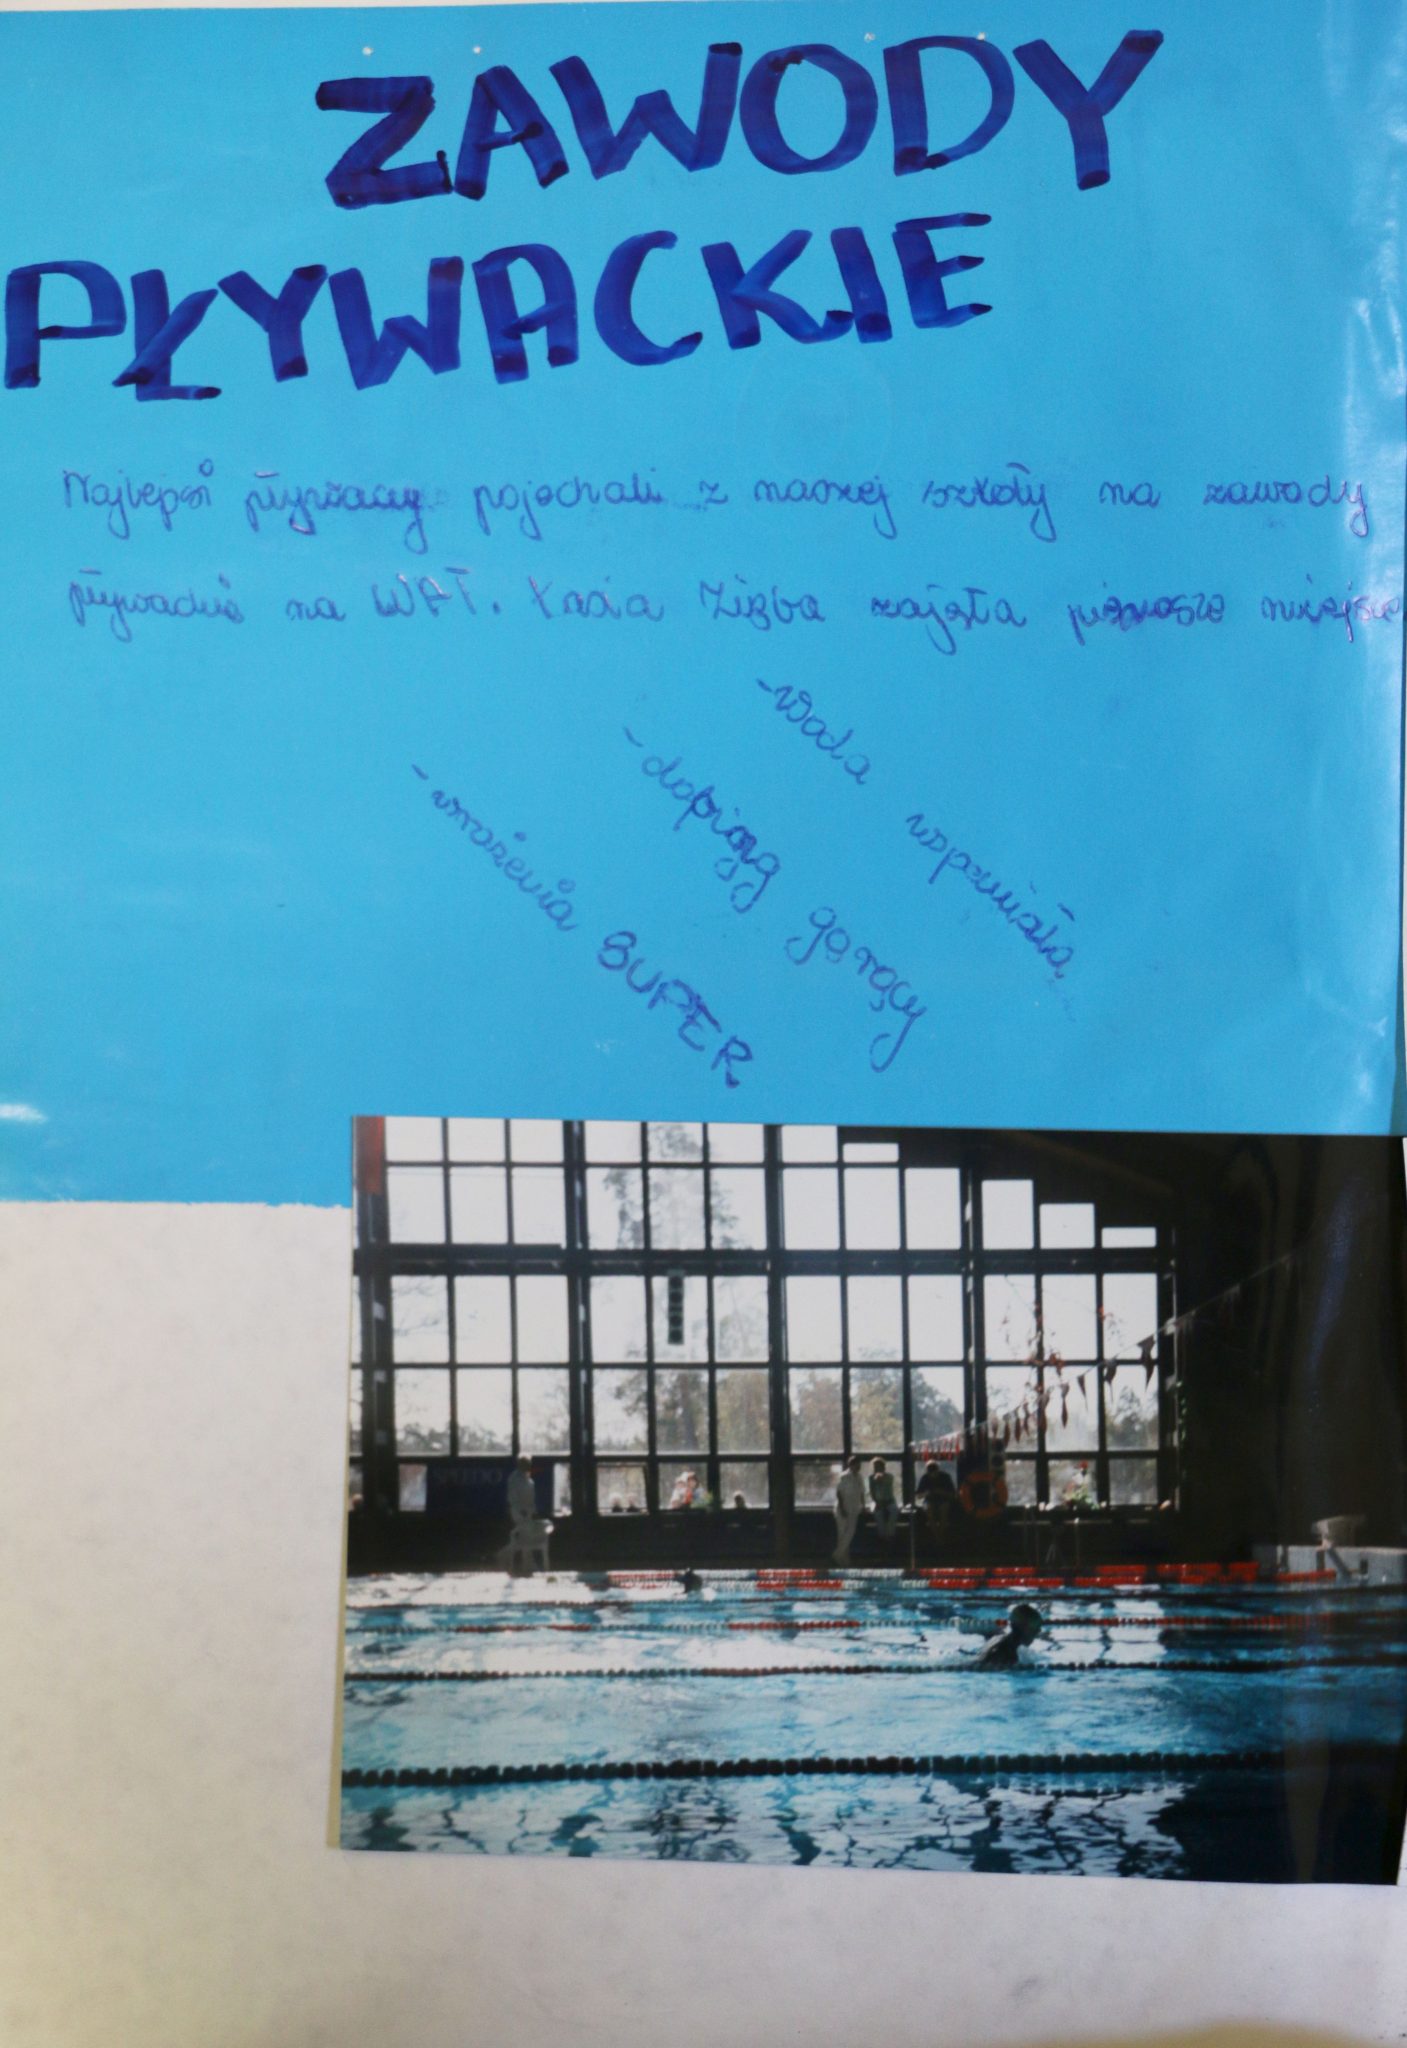 ZAWODY
PŁYWACKIE
Najlepsi pływacy pojechali z naszej szkoły na zawody
pływackie na WAT. Kasia zajęła pierwsze miejsce
-woda wspaniała
-doping gorący
-wrażenia SUPER
SPEEDO